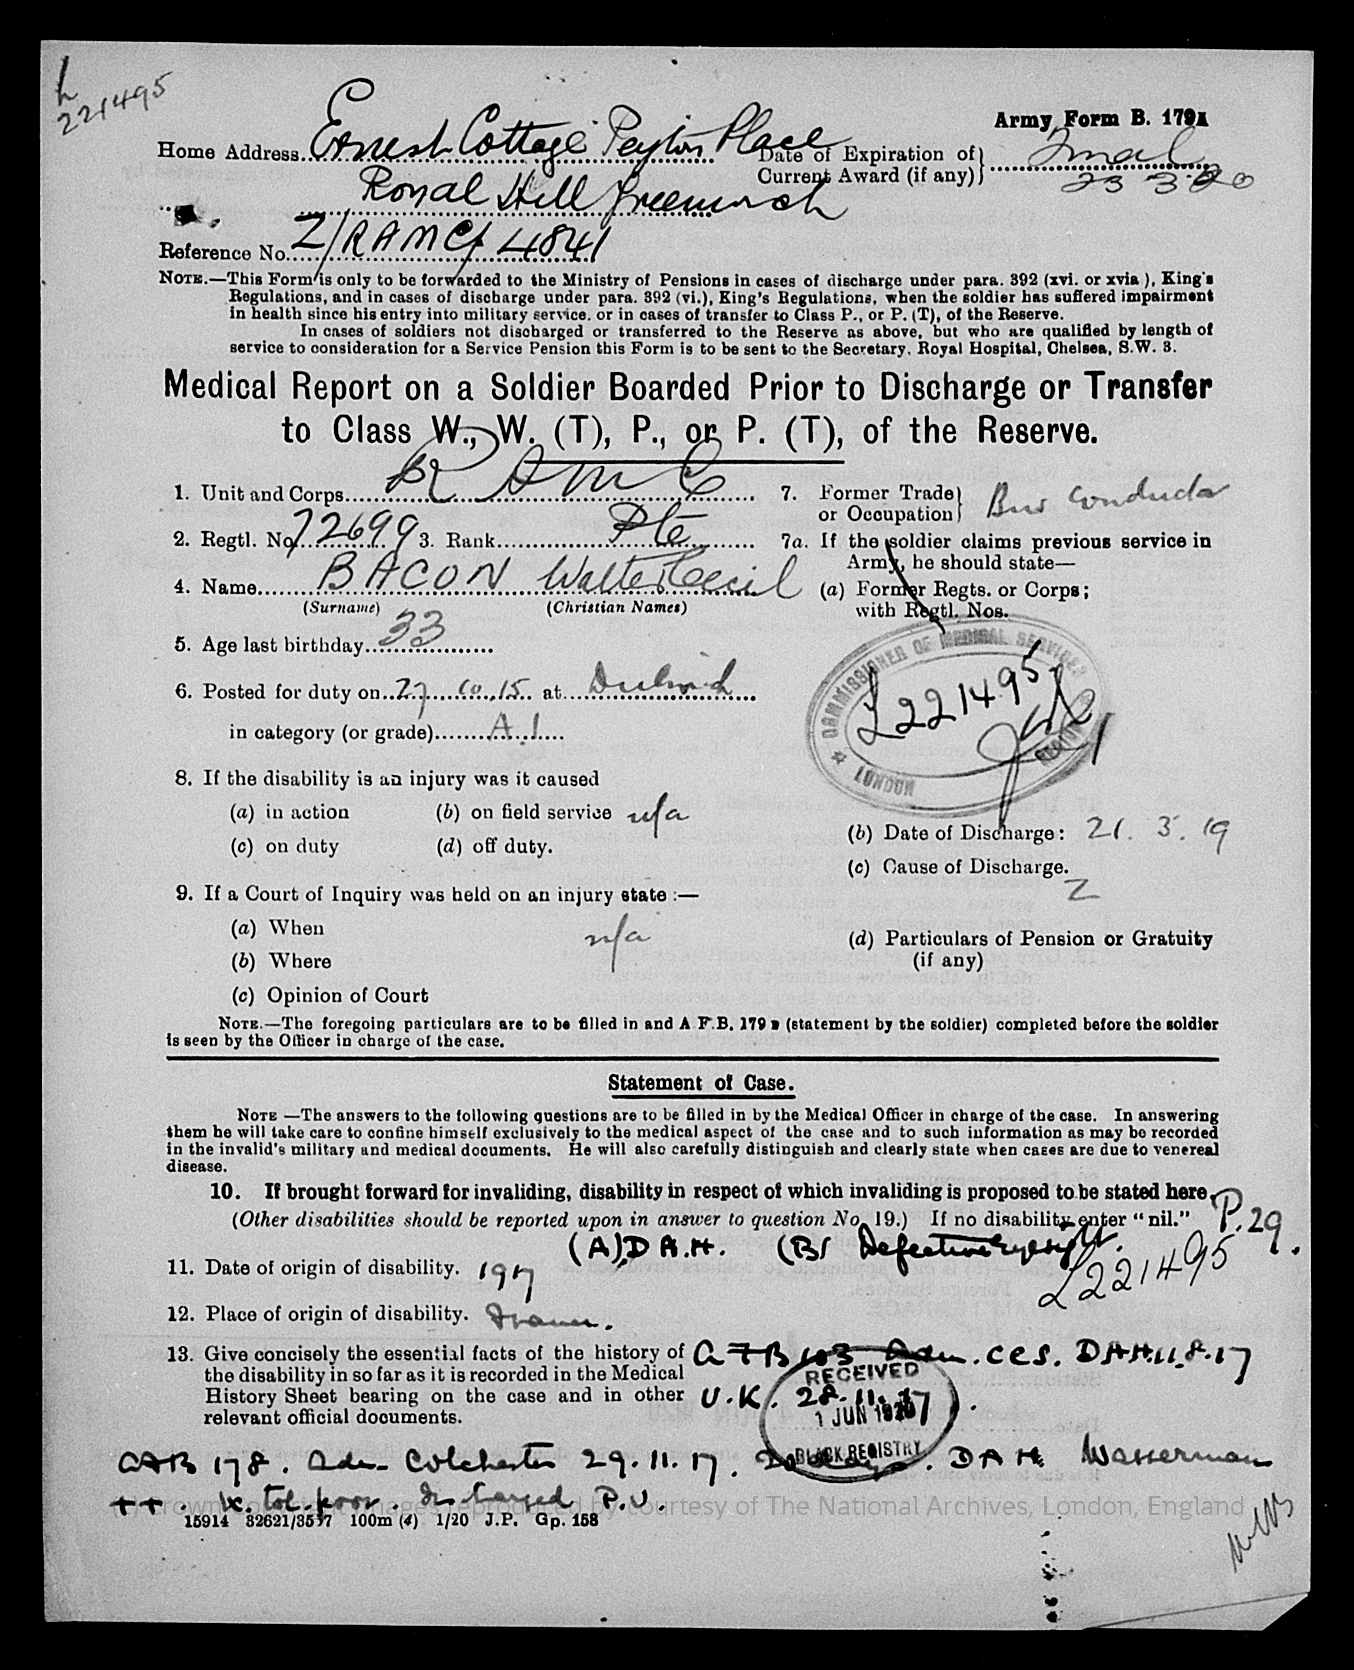 221495
Army Form B. 179A
Home Address Ernest Cottage Peyton Place
Date of Expiration of Current Award (if any) Final 23 3 20
Royal Hill Greenwich
Reference No. Z/RAMC/4841
NOTE.—This Form is only to be forwarded to the Ministry of Pensions in cases of discharge under para. 392 (xvi. or xvia), King's
Regulations, and in cases of discharge under para. 392 (vi.), King's Regulations, when the soldier has suffered impairment
in health since his entry into military service. or in cases of transfer to Class P., or P. (T), of the Reserve.
In cases of soldiers not discharged or transferred to the Reserve as above, but who are qualified by length of
service to consideration for a Service Pension this Form is to be sent to the Secretary, Royal Hospital, Chelsea, S.W. 3.
Medical Report on a Soldier Boarded Prior to Discharge or Transfer
to Class W., W. (T), P., or P. (T), of the Reserve.
1. Unit and Corps R A M C
2. Regtl. No. 72699 3. Rank Pte
4. Name BACON Walter Cecil
(Surname) (Christian Names)
5. Age last birthday 33
6. Posted for duty on 27.10.15 at Dulwich
in category (or grade) A.1
7. Former Trade or Occupation Bus Conductor
7a. If the soldier claims previous service in
Army, he should state—
(a) Former Regts. or Corps;
with Regtl. Nos.
COMMISSIONER OF MEDICAL SERVICES
L221495
LONDON REGION
8. If the disability is an injury was it caused
(a) in action (b) on field service n/a
(c) on duty (d) off duty.
(b) Date of Discharge: 21. 3. 19
(c) Cause of Discharge.
Z
9. If a Court of Inquiry was held on an injury state :—
(a) When n/a
(b) Where
(c) Opinion of Court
(d) Particulars of Pension or Gratuity
(if any)
NOTE.—The foregoing particulars are to be filled in and A F.B. 179 B (statement by the soldier) completed before the soldier
is seen by the Officer in charge of the case.
Statement of Case.
NOTE —The answers to the following questions are to be filled in by the Medical Officer in charge of the case. In answering
them he will take care to confine himself exclusively to the medical aspect of the case and to such information as may be recorded
in the invalid's military and medical documents. He will also carefully distinguish and clearly state when cases are due to venereal
disease.
10. If brought forward for invaliding, disability in respect of which invaliding is proposed to be stated here.
(Other disabilities should be reported upon in answer to question No. 19.) If no disability enter "nil." P.29.
(A) D.A.H. (B) Defective Eyesight.
L221495
11. Date of origin of disability. 1917
12. Place of origin of disability. France.
13. Give concisely the essential facts of the history of
the disability in so far as it is recorded in the Medical
History Sheet bearing on the case and in other
relevant official documents.
AFB 103 Adm. CCS. DAH 11.8.17
U.K. 28.11.17.
RECEIVED
1 JUN 1920
BLACK REGISTRY
AFB 178. Adm Colchester 29.11.17. DAH Wasserman
++. Ex. tol. poor. Discharged P.U.
(c) Crown copyright images reproduced by courtesy of The National Archives, London, England
15914 32621/3537 100m (4) 1/20 J.P. Gp. 158